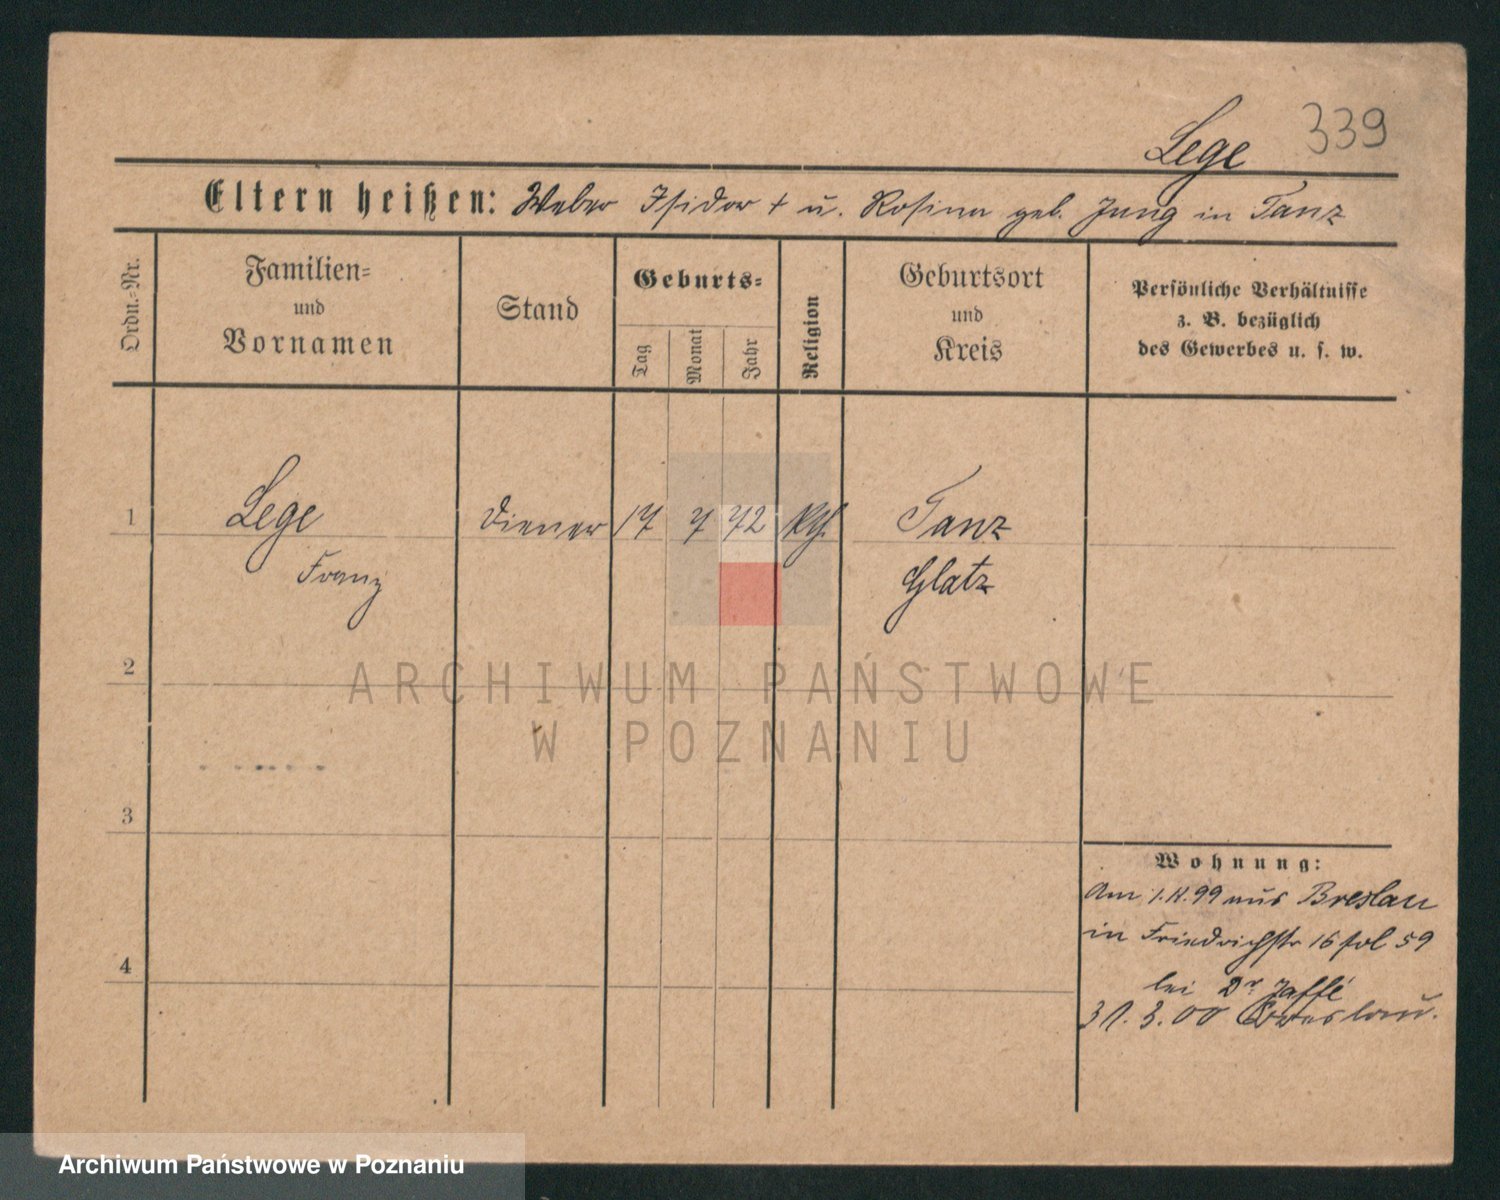 Lege 339
Eltern heißen: Weber Isidor † u. Rosina geb. Jung in Tanz
Ordn.=Nr.
Familien=
und
Vornamen
Stand
Geburts=
Tag
Monat
Jahr
Religion
Geburtsort
und
Kreis
Persönliche Verhältnisse
z. B. bezüglich
des Gewerbes u. s. w.
1 Lege Diener 17 7 72 kth. Tanz
Franz Glatz
2
ARCHIWUM PAŃSTWOWE
W POZNANIU
3
Wohnung:
Am 1. 99 aus Breslau
in Friedrichstr 16 fol 59
4
bei Dr Jaffé
31.3.00 Breslau.
Archiwum Państwowe w Poznaniu